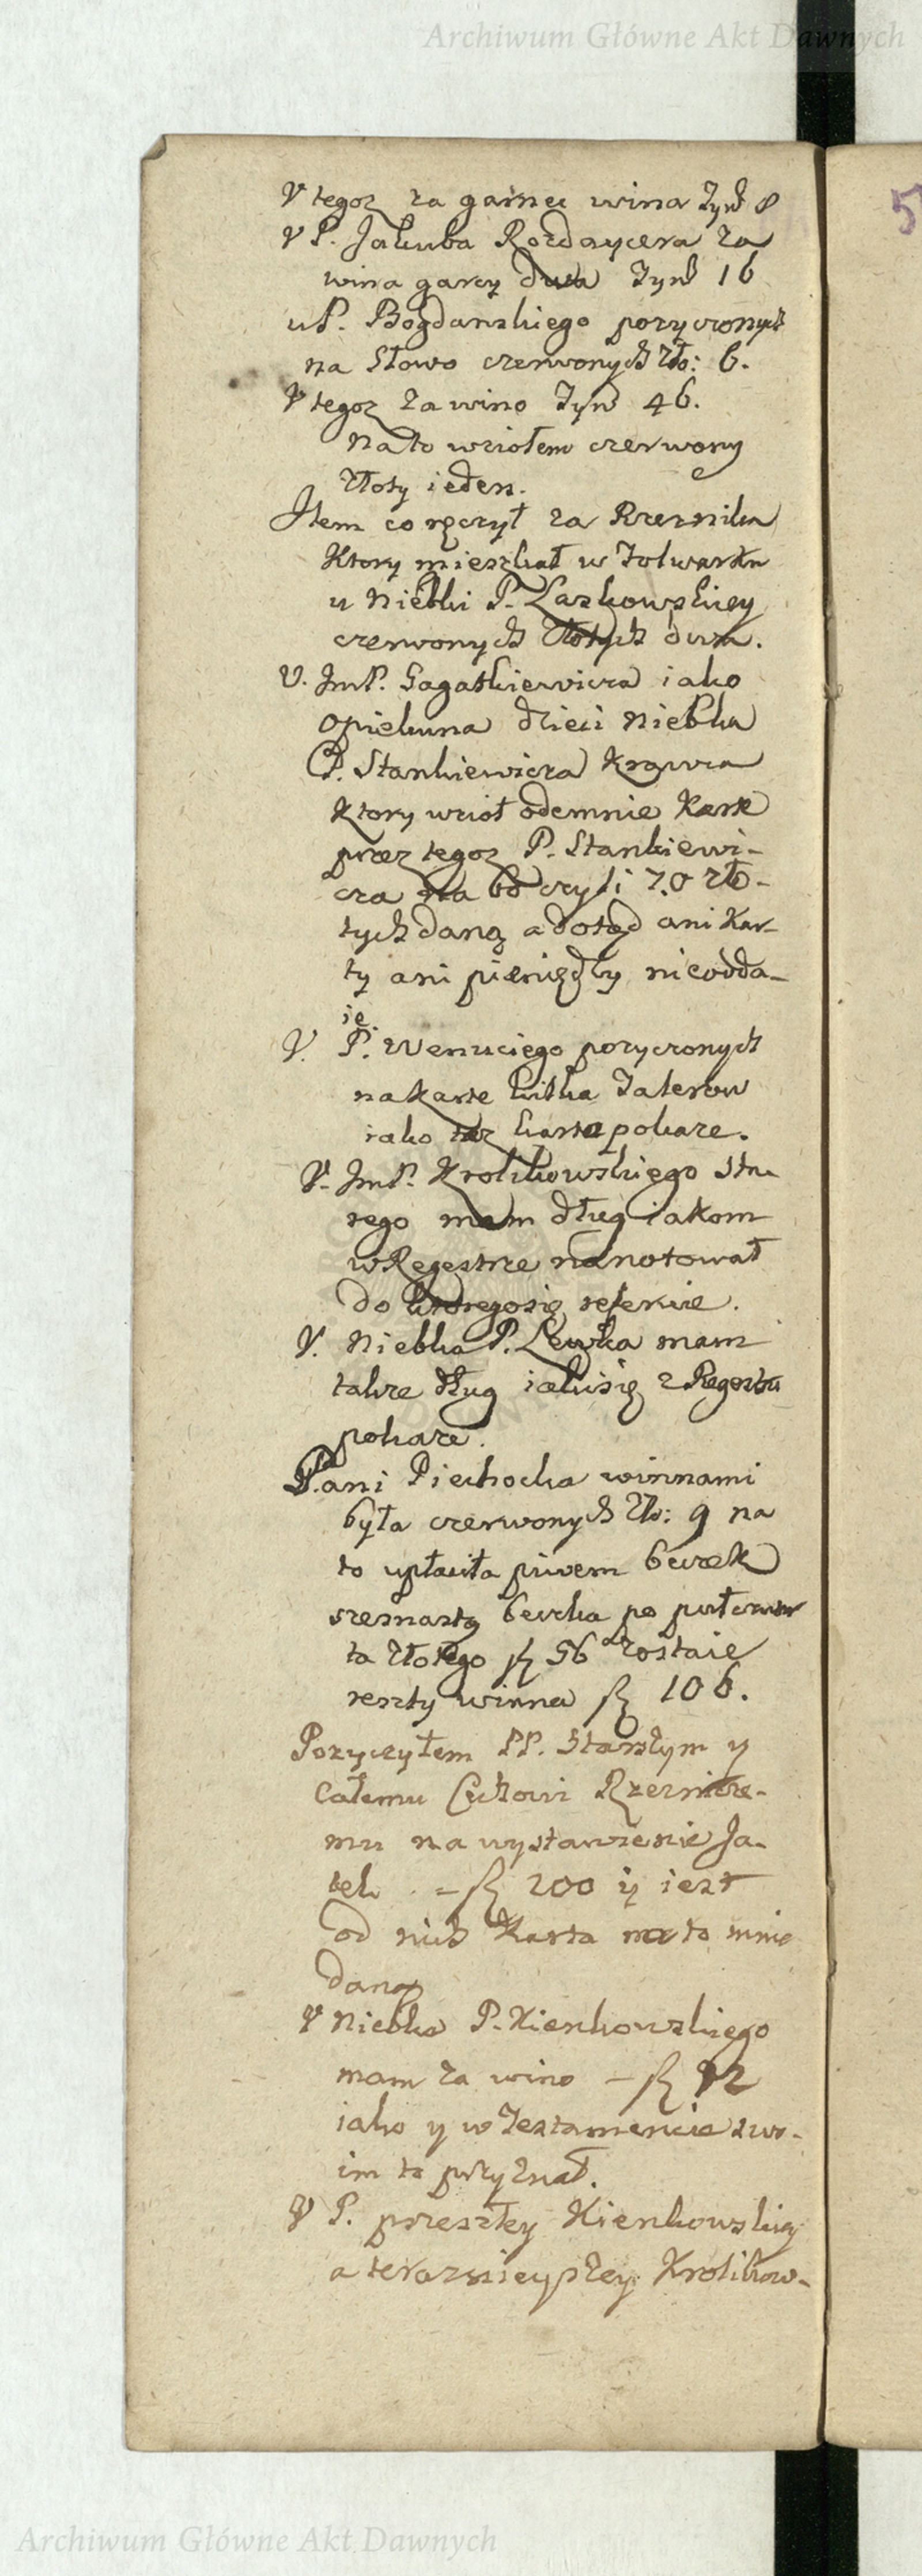 Archiwum Główne Akt Dawnych
V tegoz za garnec wina Tynf 8
V P. Jakuba Rozdaycera za
wina garcy dwa Tynf 16
u P. Bogdanskiego pozyczonych
na Słowo czerwonych Zło: 6.
V tegoz za wino Tynf 46.
Na to wziołem czerwony
złoty ieden.
Item co ręczył za Rzeznika
Ktory mieszkał w Folwarku
u Niebki P. Laskowskiey
czerwonych złotych dwa.
V. ImP. Gagatkiewicza iako
opiekuna dzieci Niebka
P. Stankiewicza Krawca
Ktory wzioł odemnie Karte
przez tegoz P. Stankiewi-
cza na 60 czyli 70 zło-
tych daną a dotąd ani Kar-
ty ani pieniędzy nie odda-
ie.
V. P. Wenuciego pozyczonych
na Karte kilka Talerow
iako taz karta pokaze.
V. ImP. Krolikowskiego Sta-
rego mam dług iakom
w Regestrze nanotował
do ktorego się referuie.
V. Niebka P. Lewka mam
takze dług iaki się z Regestru
pokaze.
Pani Piechocka winna mi
była czerwonych Zło: 9 na
to upłaciła piwem beczek
szesnastą beczka po puł czwar
ta złotego fl 56 a zostaie
reszty winna fl 106.
Pozyczyłem PP. Starszym y
Całemu Cechowi Rzeznicze-
mu na wystawienie Ja-
tek - fl 200 y iest
od nich Karta na to mnie
dana
V Niebka P. Kienkowskiego
mam za wino - fl 92
iako y w Testamencie swo-
im to przyznał.
V P. przeszłey Kienkowskiey
a teraznieyszey Krolikow-
Archiwum Główne Akt Dawnych